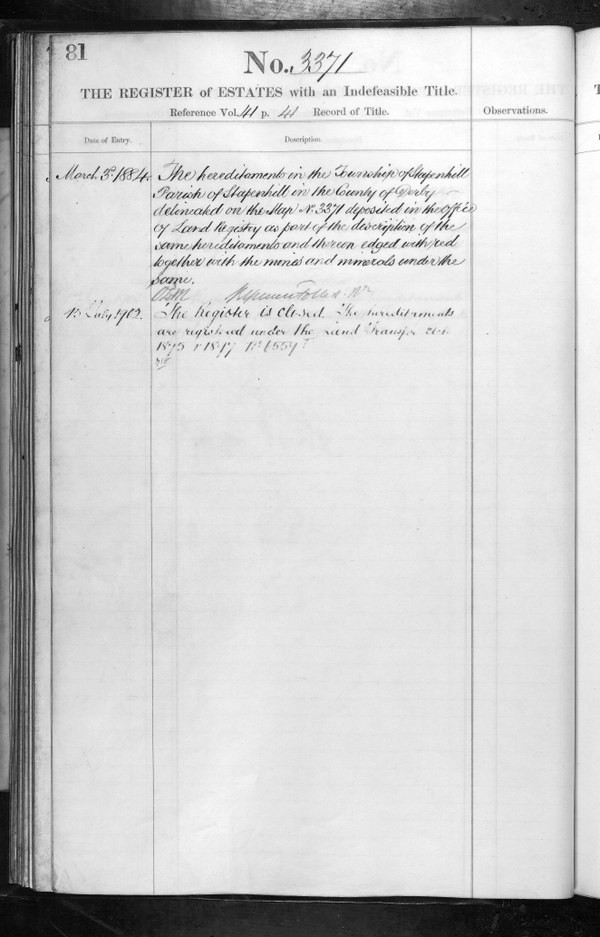 81
No. 3371
THE REGISTER of ESTATES with an Indefeasible Title.
Reference Vol. 41 p. 41 Record of Title.
Observations.
Date of Entry.
Description.
March 3d 1884.
The hereditaments in the Township of Stapenhill
Parish of Stapenhill in the County of Derby
delineated on the Map No 3371 deposited in the Office
of Land Registry as part of the description of the
same hereditaments and thereon edged with red
together with the mines and minerals under the
same.
July 1902.
The Register is closed. The hereditaments
are registered under the Land Transfer
1875 1897